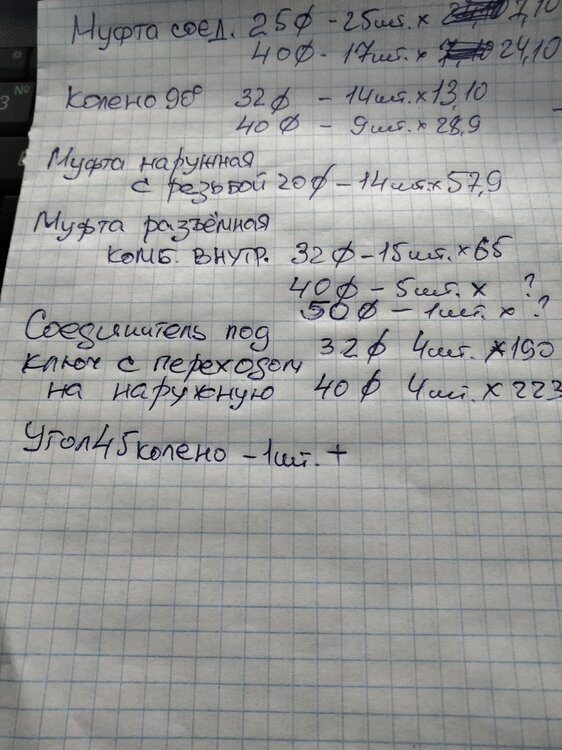 Муфта соед. 25ф - 25шт. x 7,10
40ф - 17шт. x 24,10
Колено 90° 32ф - 14шт. x 13,10
40ф - 9шт. x 28,9
Муфта наружная
с резьбой 20ф - 14шт. x 57,9
Муфта разъёмная
комб. внутр. 32ф - 15шт. x 65
40ф - 5шт. x ?
50ф - 1шт. x ?
Соединитель под
ключ с переходом 32ф 4шт. x 190
на наружную 40ф 4шт. x 223
Угол 45 колено - 1шт. +